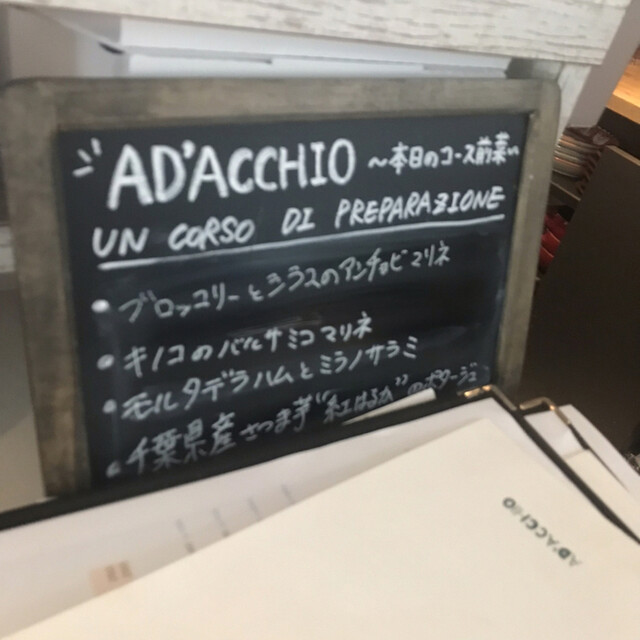 AD'ACCHIO ～本日のコース前菜～
UN CORSO DI PREPARAZIONE
• ブロッコリーとシラスのアンチョビマリネ
• キノコのバルサミコマリネ
• モルタデラハムとミラノサラミ
• 千葉県産さつま芋"紅はるか"のポタージュ
AD'ACCHIO